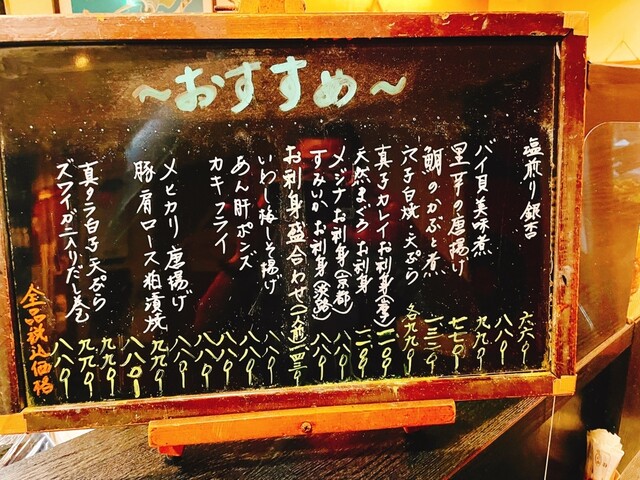 ～おすすめ～
塩煎り銀杏 六六〇
八八〇
バイ貝美味煮 九九〇
里芋の唐揚げ 七七〇
鯛のかぶと煮 一三二〇
穴子白焼・天ぷら 各九九〇
真子カレイお刺身
天然まぐろお刺身
メジナお刺身(京都) 八八〇
すみいかお刺身(淡路) 八八〇
お刺身盛合わせ(一人前) 一四三〇
いわし梅しそ揚げ 八八〇
あん肝ポンズ 八八〇
カキフライ 八八〇
八八〇
メヒカリ唐揚げ 八八〇
豚肩ロース粕漬焼 九九〇
八八〇
真タラ白子天ぷら 九九〇
ズワイガニ入りだし巻 八八〇
全品税込価格